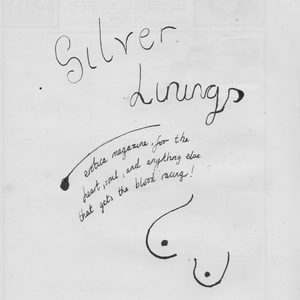 Silver
Linings
erotica magazine, for the
heart, soul, and anything else
that gets the blood racing!